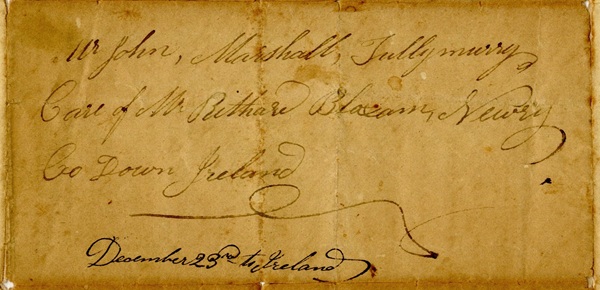 Mr John, Marshall, Tullymurry
Care of Mr Rithard Bloxam, Newry
Co Down Ireland
December 23rd to Ireland